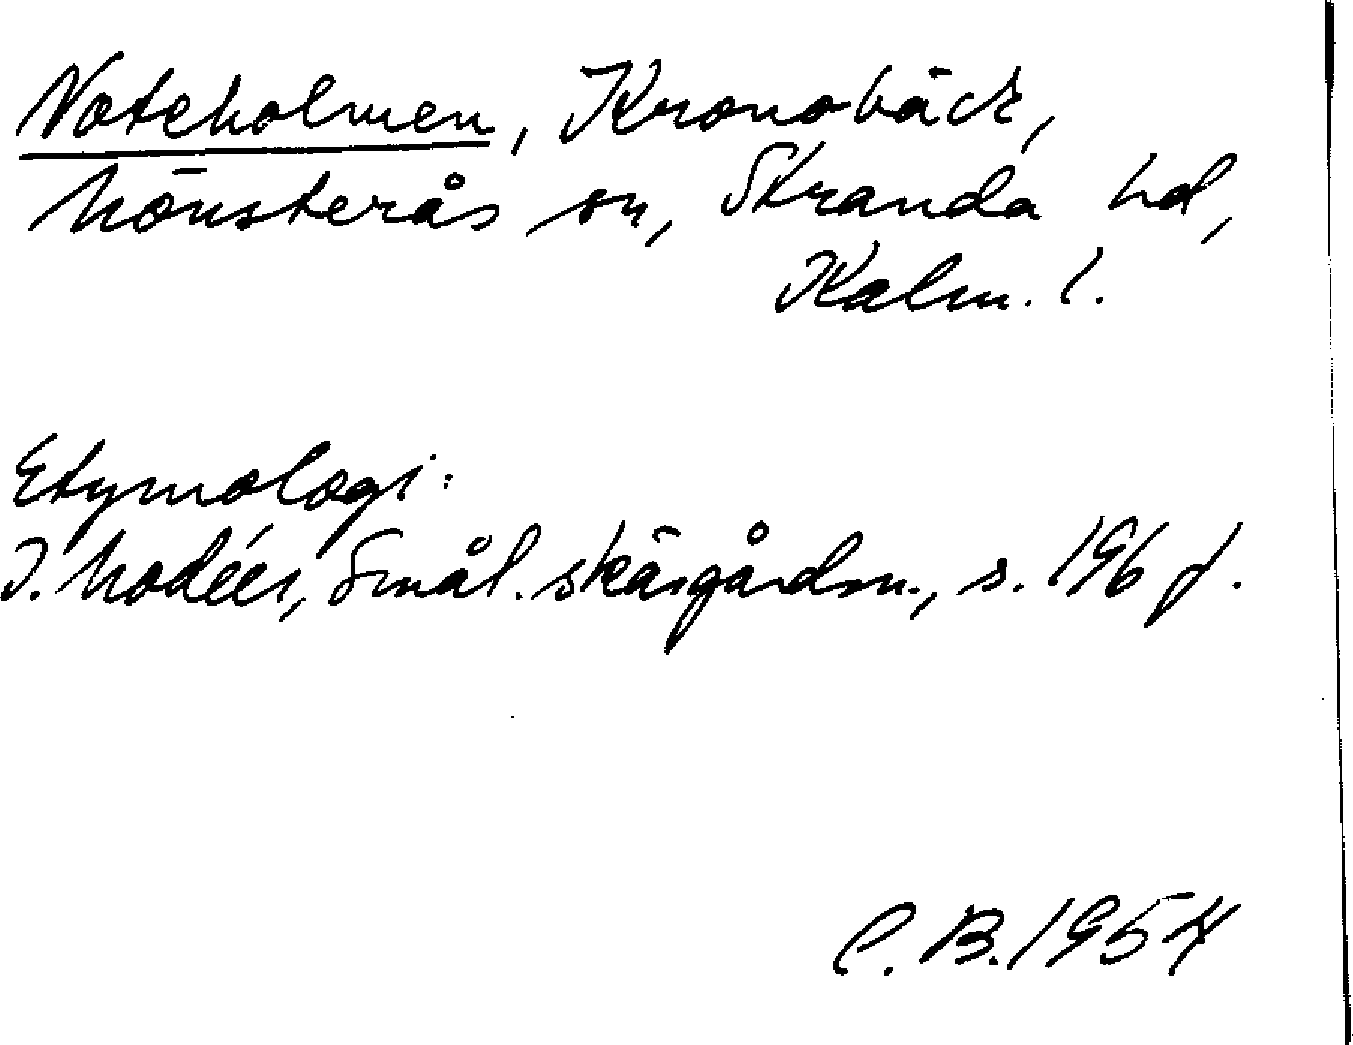 Noteholmen, Kronobäck,
Mönsterås sn, Stranda hd,
Kalm. l.
Etymologi:
I. Modéer, Smål. skärgårdsn., s. 196 f.
C. B. 1954